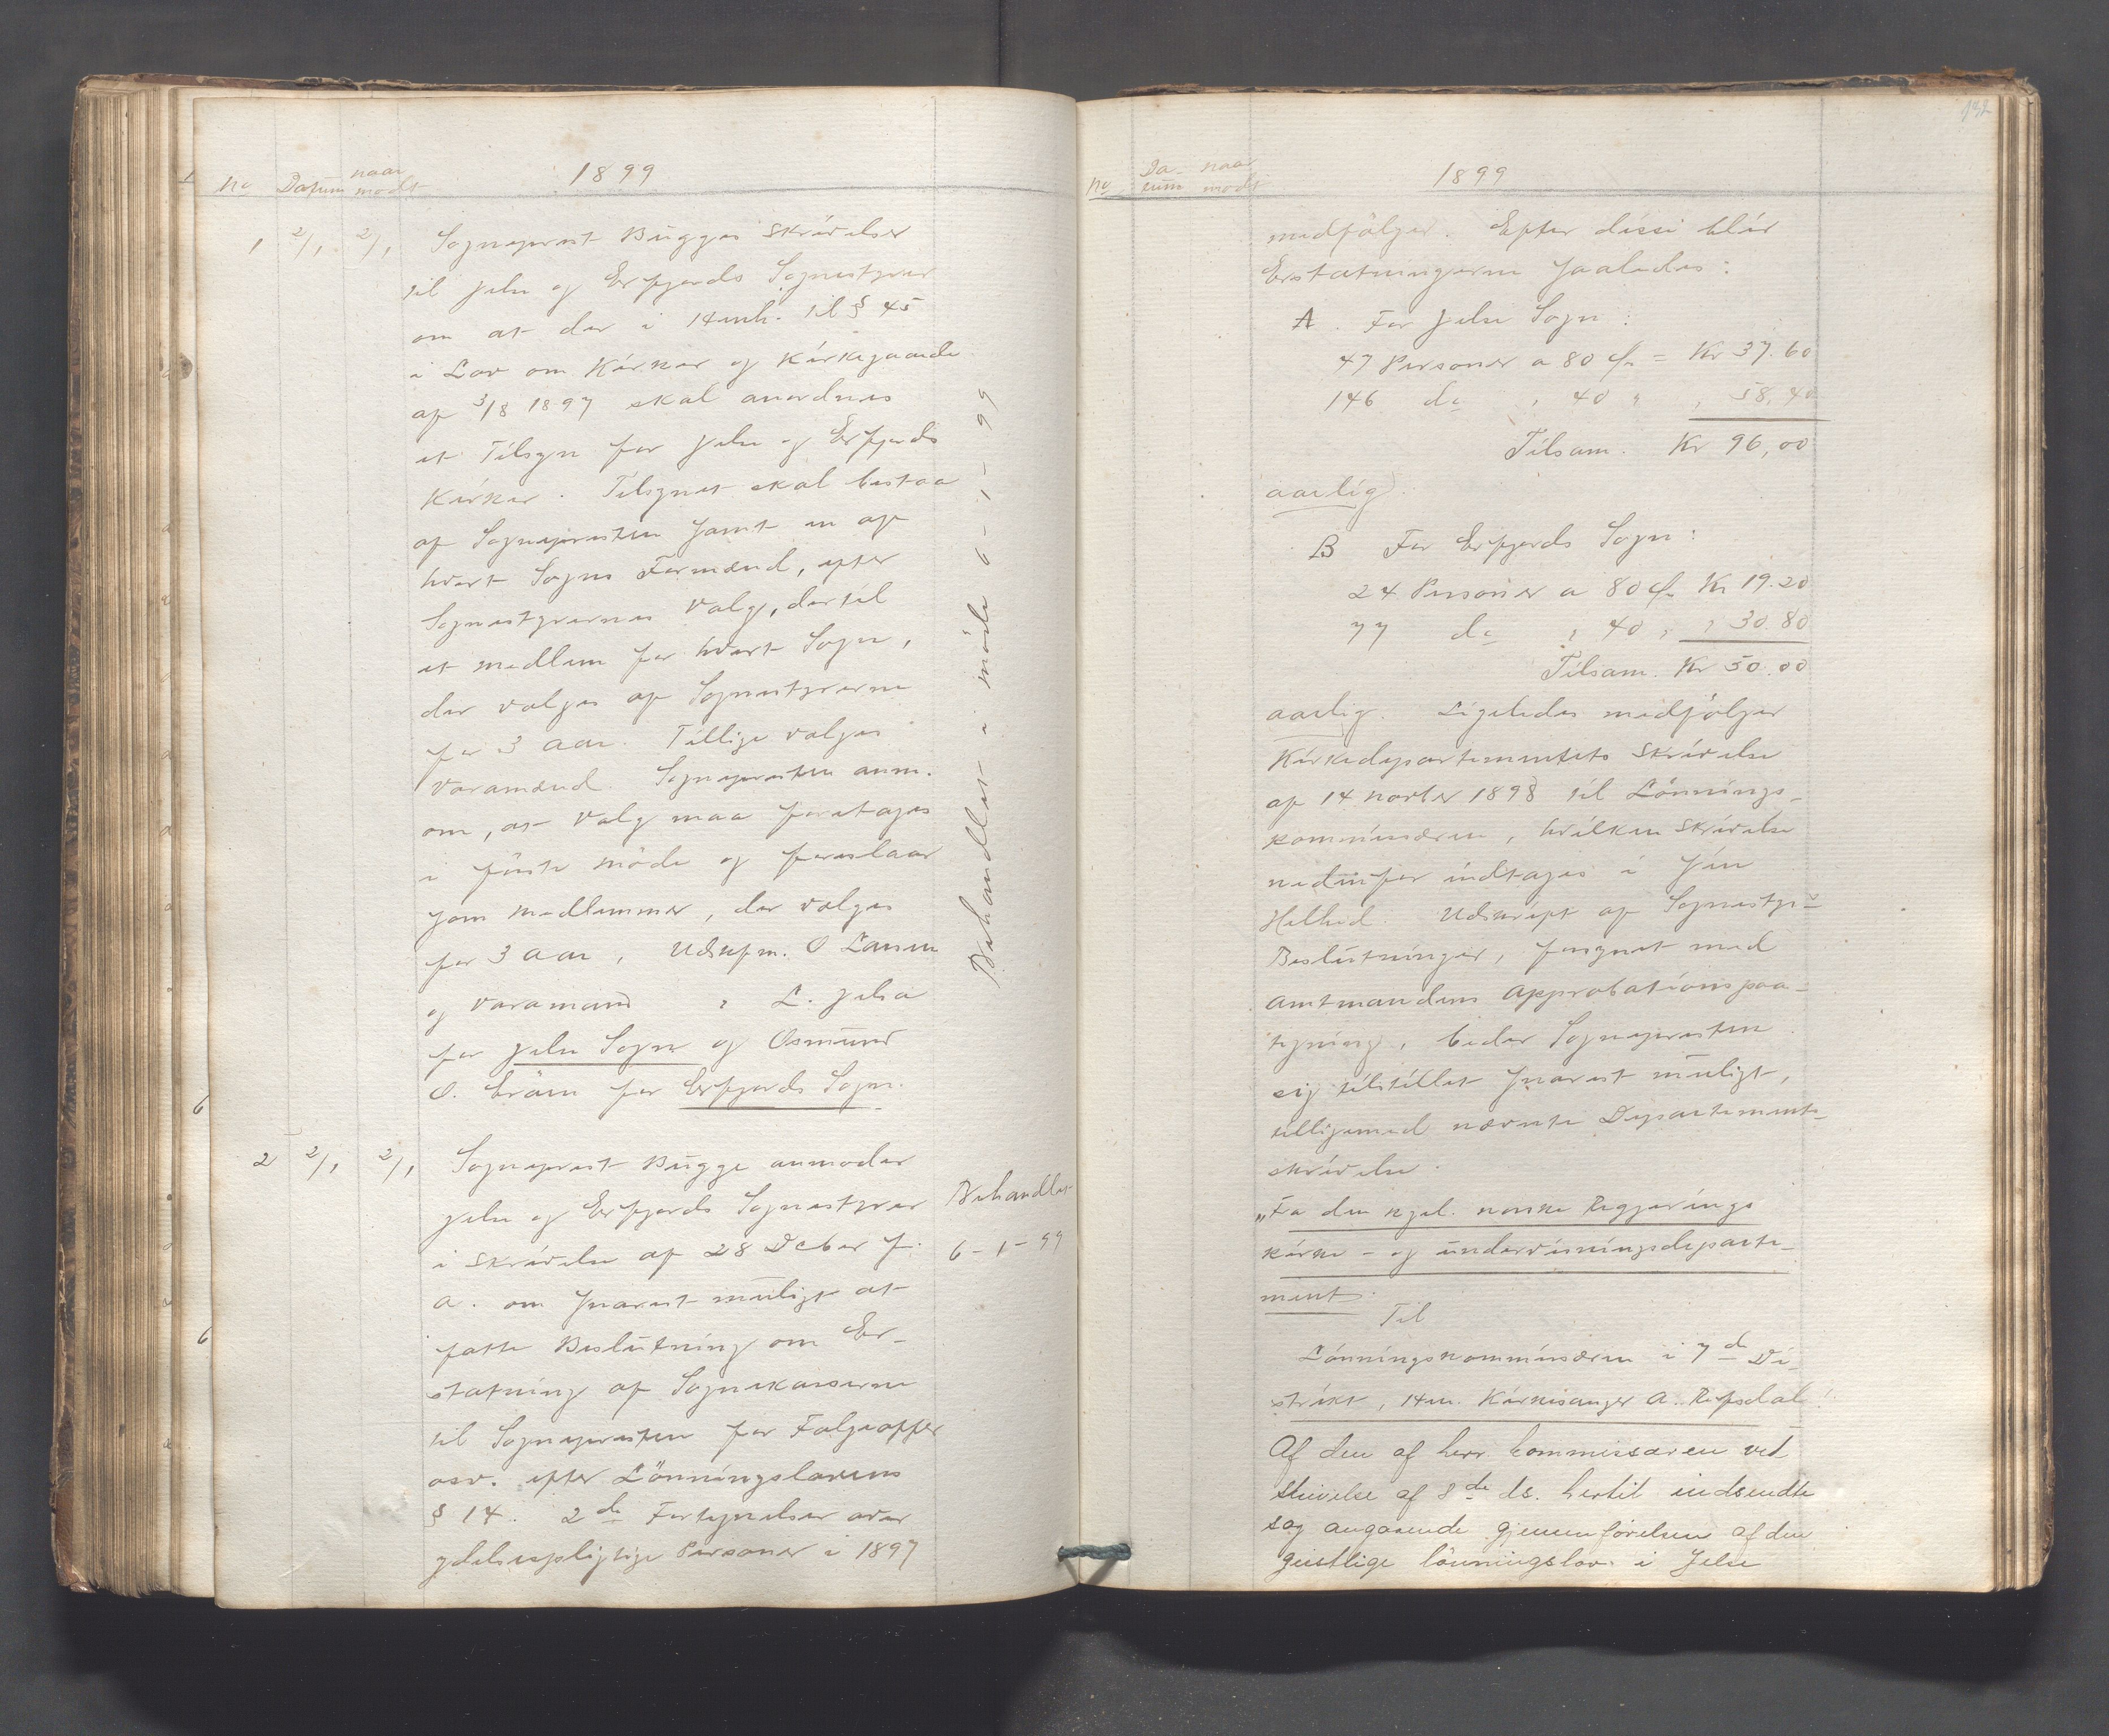 No Datum naar modt 1899
1 2/1 2/1 Sogneprest Bugges Skrivelser
til Jelse og Erfjords Sognestyrer
om at der i Henh. til § 45
i Lov om Kirker og Kirkegaarde
af 3/8 1897 skal anordnes
et Tilsyn for Jelse og Erfjords
Kirker. Tilsynet skal bestaa
af Sognepresten samt en af
hvert Sogns Formænd, efter
Sognestyrernes Valg, dertil
et medlem for hvert Sogn,
der vælges af Sognestyrerne
for 3 aar. Tillige vælges
Varamænd. Sognepresten anm.
om, at Valg maa foretages
i förste möde og foreslaar
som medlemmer, der vælges
for 3 aar, Udskfm. O Larsen
og varamand " L. Jelsa
for Jelse Sogn og Osmund
O. Bröm for Erfjords Sogn.
Behandlet i möde 6-1-99
2 2/1 2/1 Sogneprest Bugge anmoder
Jelse og Erfjords Sognestyrer
i Skrivelse af 28 Dcber f.
a. om snarest muligt at
fatte Beslutning om Er-
statning af Sognekasserne
til Sognepresten for Følgeoffer
osv. efter Lönningslovens
§ 14. 2de Fortegnelser over
ydelsespligtige Personer i 1897
Behandlet
6-1-99
6
6
132
No Da- tum naar modt 1899
medfölger. Efter disse blir
Erstatningerne saaledes:
A. For Jelse Sogn:
47 Personer a 80 Öre = Kr 37.60
146 do " 40 " " 58,40
Tilsam. Kr 96,00
aarlig.
B For Erfjords Sogn:
24 Personer a 80 Öre Kr 19.20
77 do " 40 " " 30.80
Tilsam. Kr 50.00
aarlig. Ligeledes medfölger
Kirkedepartementets Skrivelse
af 14 Novber 1898 til Lönnings-
kommissæren, hvilken Skrivelse
nedenfor indtages i sin
Helhed. Udskrift af Sognesty-s
Beslutninger, forsynet med
Amtmandens Approbationspaa-
tegning, beder Sognepresten
sig tilstillet snarest muligt,
tilligemed nævnte Departements-
skrivelse.
"Fra den kgel. norske Regjerings
kirke- og undervisningsdeparte-
ment.
Til
Lönningskommissæren i 7de Di-
strikt, Hr. Kirkesanger A. Refsdal.
Af den af herr kommissæren ved
skrivelse af 8de ds. hertil indsendte
sag angaaende gjennemförelsen af den
geistlige lönningslov i Jelse